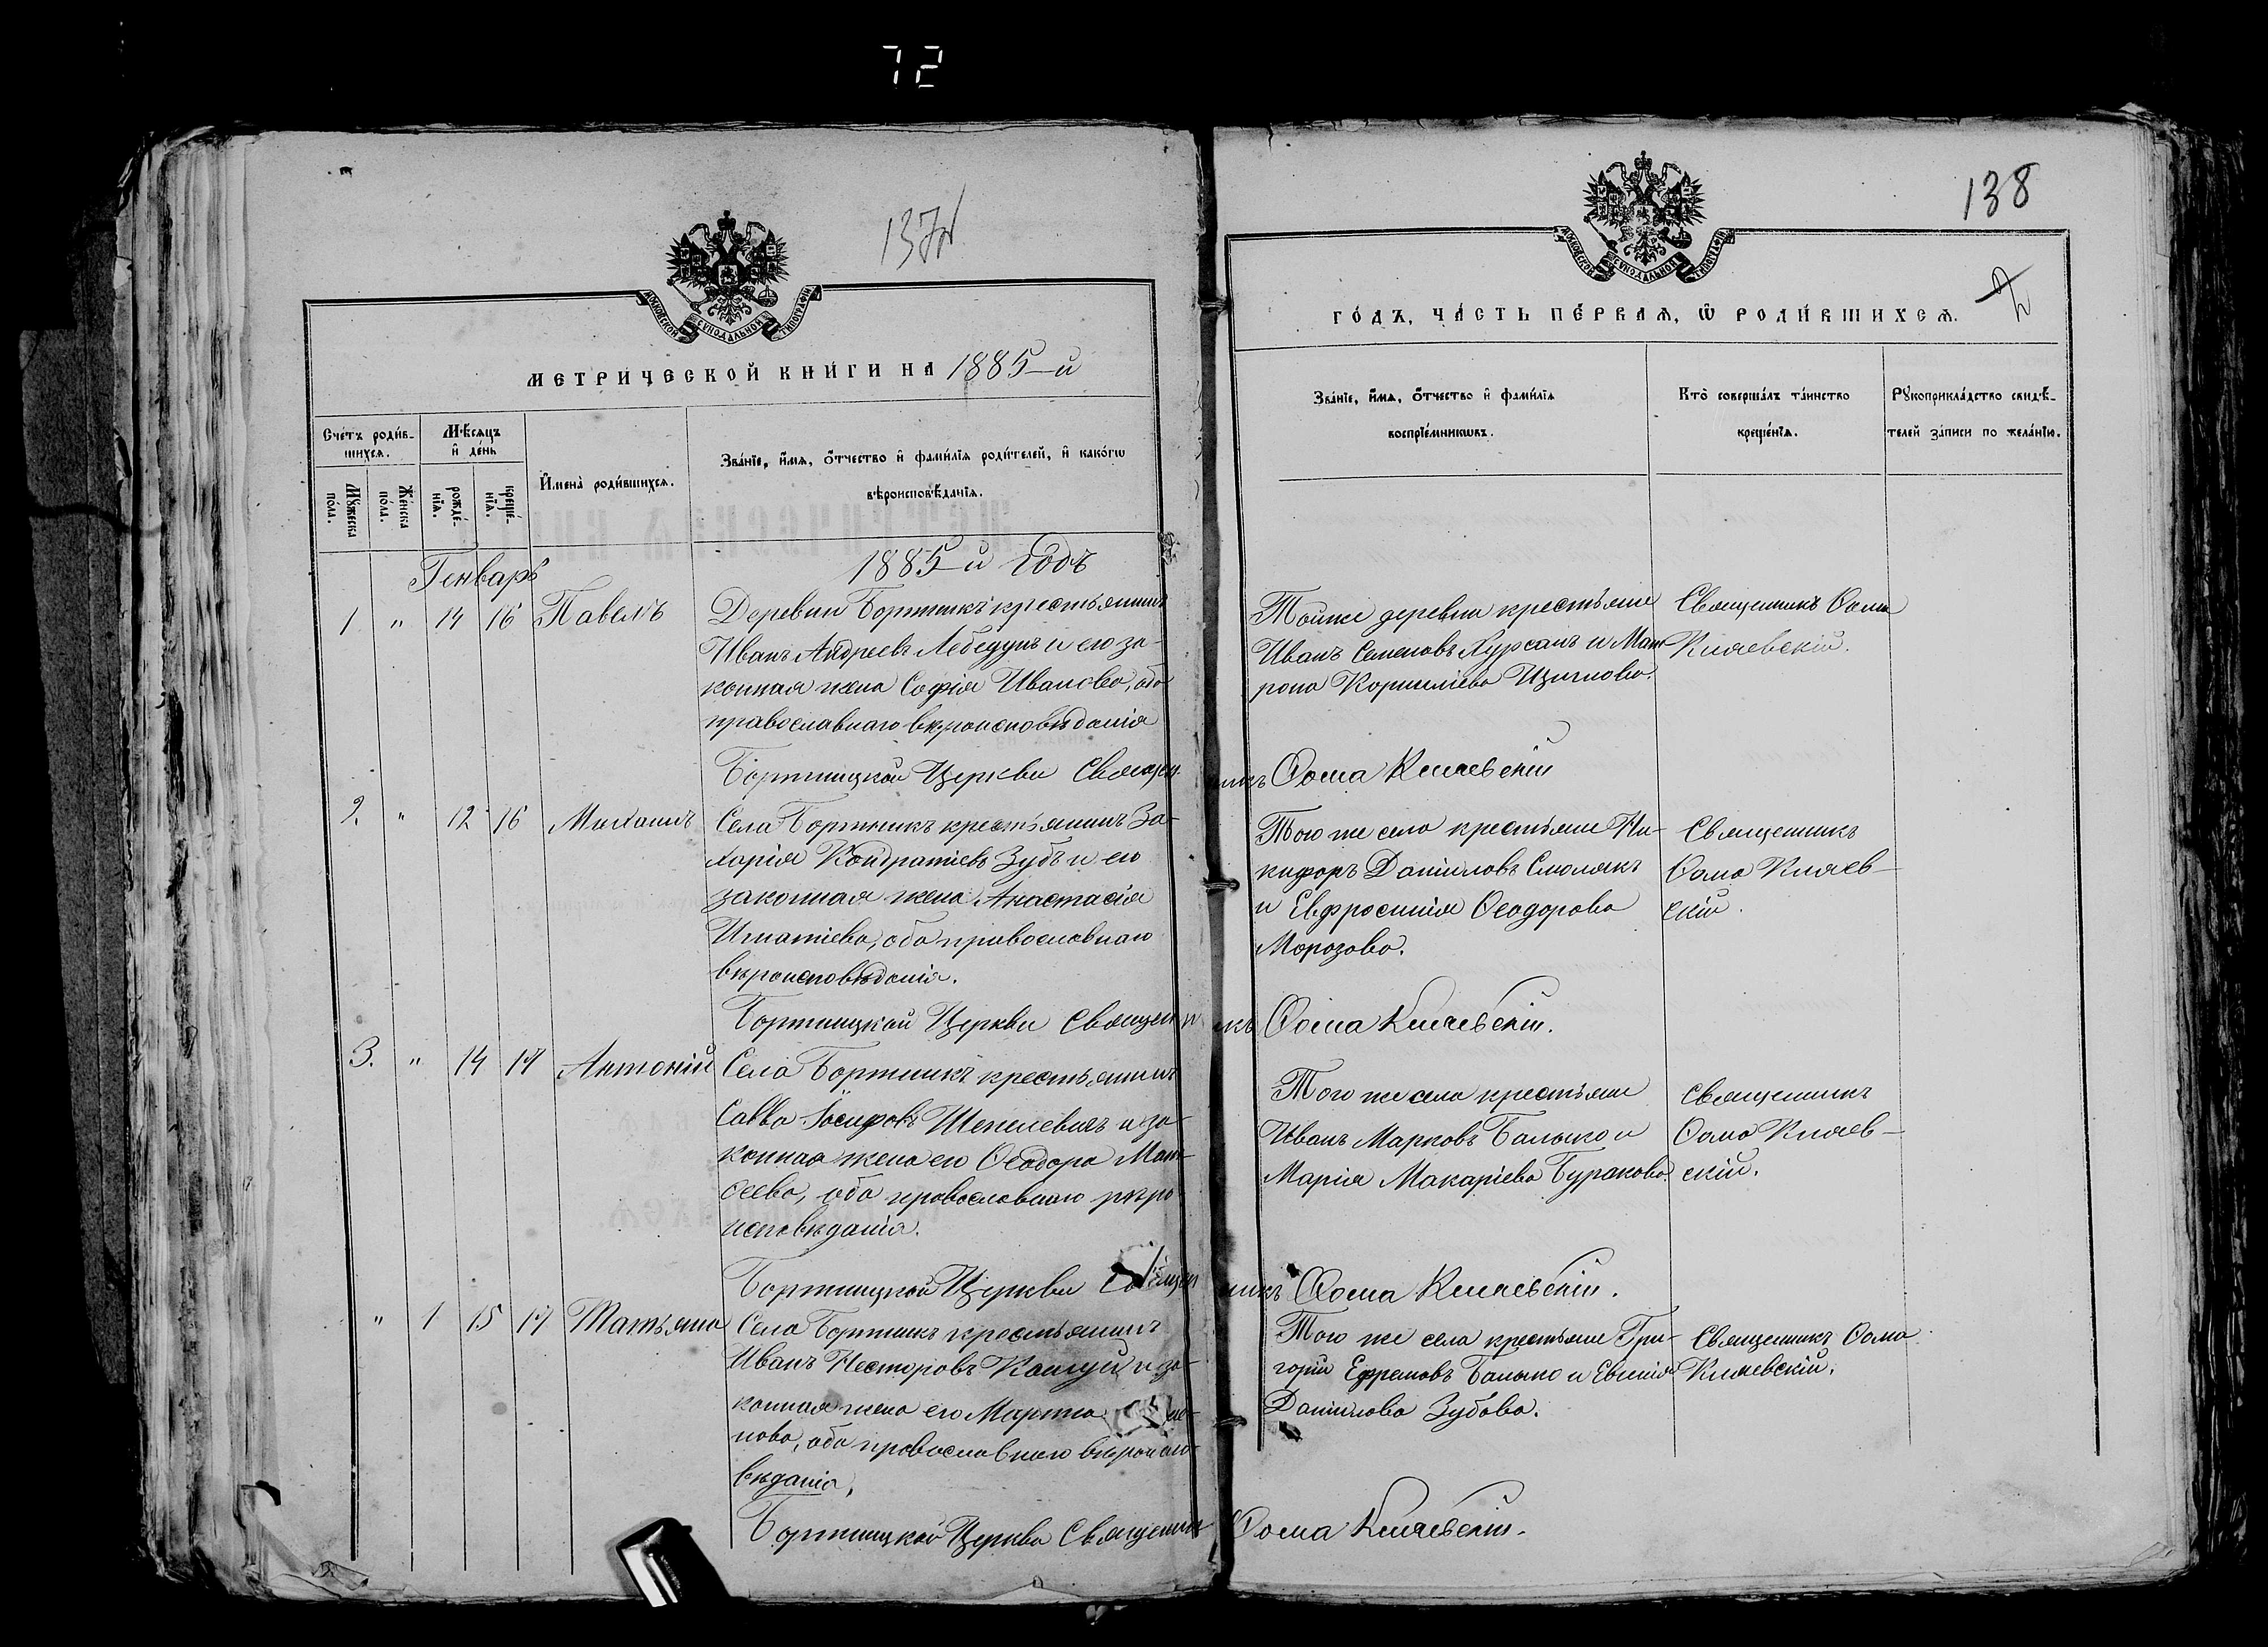 72
138
МОСКОВСКОЙ СѴНОДАЛЬНОЙ ТИПОГРАФІИ
МЕТРИЧЕСКОЙ КНИГИ НА 1885-й
Счетъ родив-
шихся.
Мѣсяцъ
и день
Имена родившихся.
Званіе, имя, отчество и фамилія родителей, и какогѡ
вѣроисповѣданія.
Мꙋжеска
пола.
Женска
пола.
рожде-
нія.
креще-
нія.
Генварь
1885-й годъ
1 " 14 16 Павелъ
Деревни Бортникъ крестьянинъ
Иванъ Андреевъ Лебедунъ и его за-
конная жена Софія Иванова, оба
православнаго вѣроисповѣданія
Бортницкой Церкви Священ
2. " 12 16 Михаилъ
Села Бортникъ крестьянинъ За-
харія Кондратіевъ Зубъ и его
законная жена Анастасія
Игнатіева, оба православнаго
вѣроисповѣданія.
Бортницкой Церкви Священн
3. " 14 17 Антоній
Села Бортникъ крестьянинъ
Савва Іосифовъ Шепелевичъ и за-
конная жена его Ѳеодора Мат-
ѳеева, оба православнаго вѣро
исповѣданія.
Бортницкой Церкви Священ
" 1 15 17 Татьяна
Села Бортникъ крестьянинъ
Иванъ Несторовъ и за-
конная жена его Марѳа
нова, оба православнаго вѣроиспо-
вѣданія,
Бортницкой Церкви Священникъ
МОСКОВСКОЙ СѴНОДАЛЬНОЙ ТИПОГРАФІИ
ГОДЪ, ЧАСТЬ ПЕРВАЯ, Ѿ РОДИВШИХСЯ.
Званіе, имя, отчество и фамилія
воспріемникѡвъ.
Кто совершалъ таинство
крещенія.
Рꙋкоприкладство свидѣ-
телей записи по желанію.
Тойже деревни крестьяне
Иванъ Семеновъ Хурсанъ и Мат
рона Корниліева
Священникъ Ѳома
Княевскій.
икъ Ѳома Княевскій
Того же села крестьяне Ни-
кифоръ Даниловъ Смолякъ
и Евфросинія Ѳеодорова
Морозова.
Священникъ
Ѳома Княев-
скій.
икъ Ѳома Княевскій.
Того же села крестьяне
Иванъ Марковъ Балыко и
Марія Макаріева Буракова.
Священникъ
Ѳома Княев-
скій.
никъ Ѳома Княевскій.
Того же села крестьяне Гри-
горій Ефремовъ Балыко и Евгенія
Данилова Зубова.
Священникъ Ѳома
Княевскій.
Ѳома Княевскій.